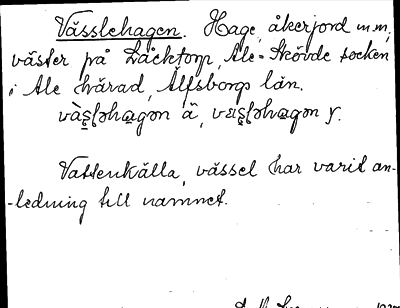 Vässlehagen. Hage, åkerjord m.m,
väster på Låcktorp, Ale-Skövde socken
i Ale härad, Älfsborgs län.
Vattenkälla, vässel har varit an-
-ledning till namnet.